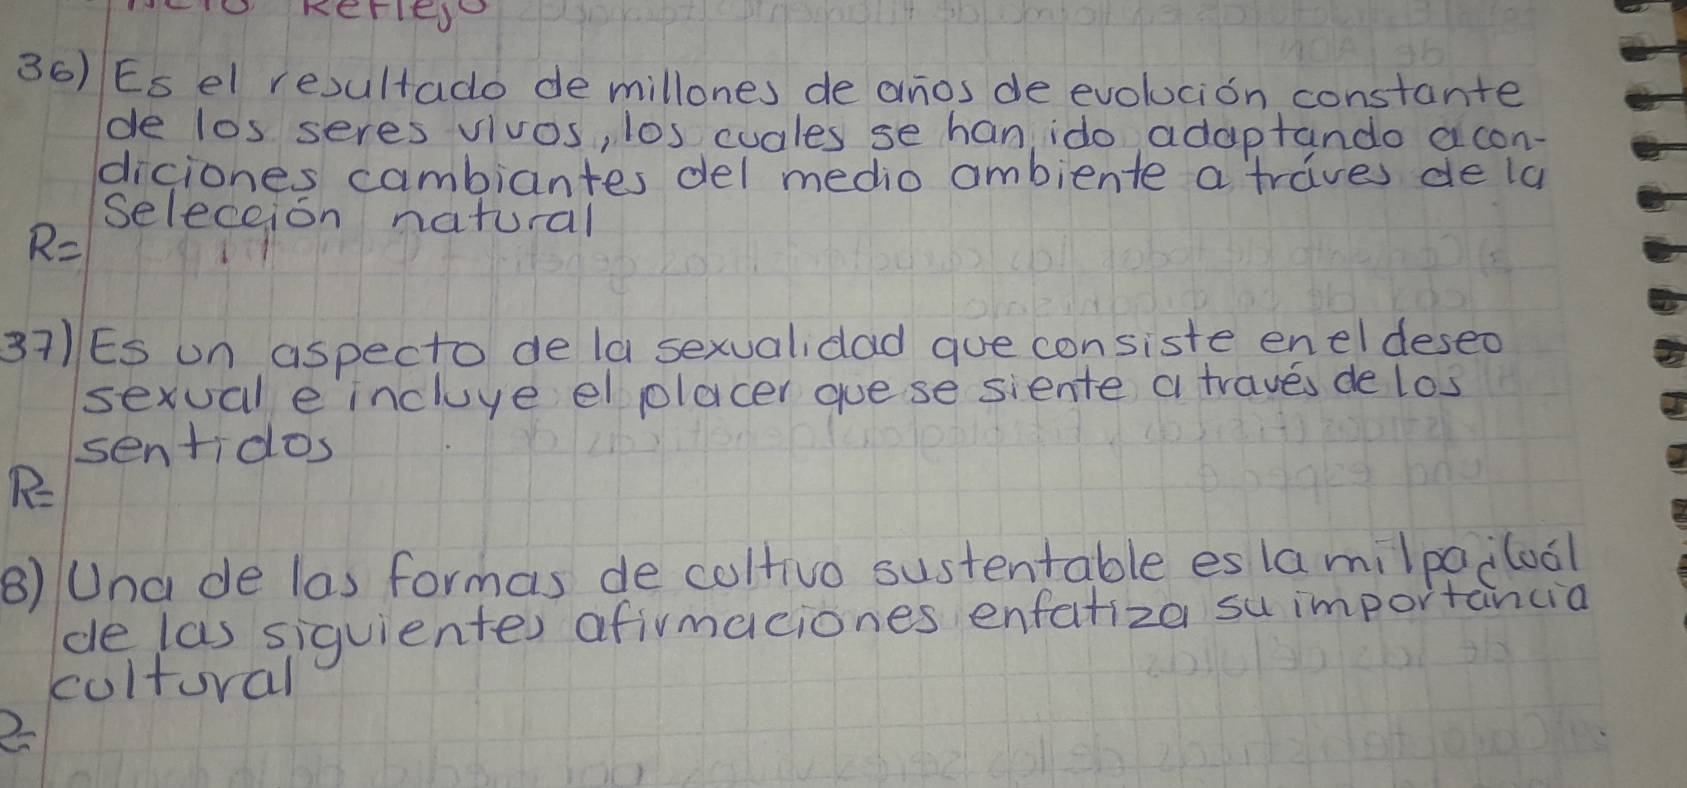 Reflejo
36) Es el resultado de millones de años de evolución constante
de los seres vivos, los cuales se han ido adaptando a con-
diciones cambiantes del medio ambiente a tráves de la
Selección natural
R=
37) Es un aspecto de la sexualidad que consiste en el deseo
sexual e incluye el placer que se siente a través de los
sentidos
R=
8) Una de las formas de coltivo sustentable es la milpa ¿Cuál
de las siguientes afirmaciones enfatiza su importancia
coltural
R=